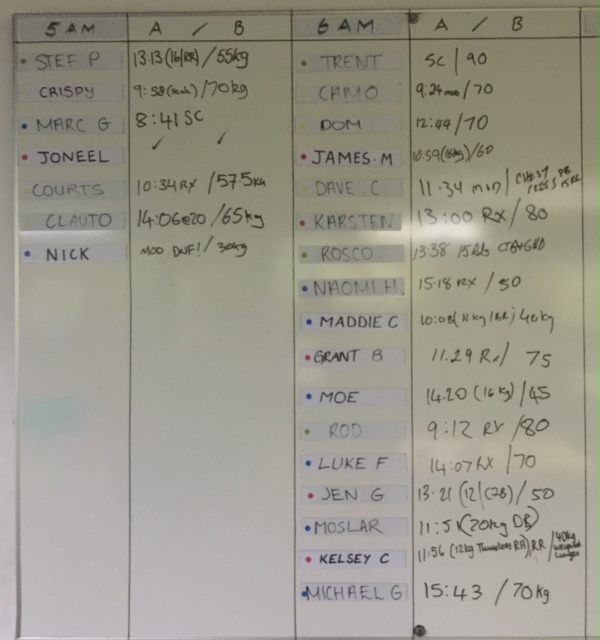 5 AM A / B
STEF P 13:13 (16/RR) / 55kg
CRISPY 9:58 (scale) / 70kg
MARC G 8:41 SC
JONEEL ✓ ✓
COURTS 10:34 RX / 57.5KG
CLAUTO 14:06e20 / 65kg
NICK MOD DUF! / 30kg
6 AM A / B
TRENT SC / 90
CAMO 9:24 / 70
DOM 12:44 / 70
JAMES.M 10:59 (16kg) / 60
DAVE C 11.34 mod / CHEST PRESS DB
KARSTEN 13:00 RX / 80
ROSCO 13:38
NAOMI H 15:18 RX / 50
MADDIE C 10:08 (12kg / RR) 40kg
GRANT B 11.29 RX / 75
MOE 14.20 (16kg) / 45
ROD 9:12 RX / 80
LUKE F 14:07 RX / 70
JEN G 13.21 (12/C2B) / 50
MOSLAR (20kg DB)
KELSEY C 11:56 (12kg Thrusters RR / 40kg weighted Lunges
MICHAEL G 15:43 / 70kg